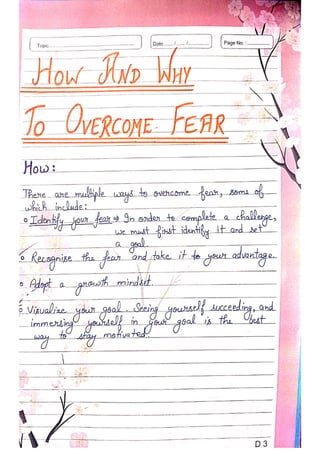 Topic
Date / /
Page No
HOW AND WHY
TO OVERCOME FEAR
How:
There are multiple ways to overcome fear, some of
which include:
Identify your fear ⇒ In order to complete a challenge,
we must first identify It and set
a goal.
Recognise the fear and take it to your advantage.
Adopt a growth mindset.
Visualize your goal. Seeing yourself succeeding, and
immersing yourself in your goal is the best
way to stay motivated.
D3